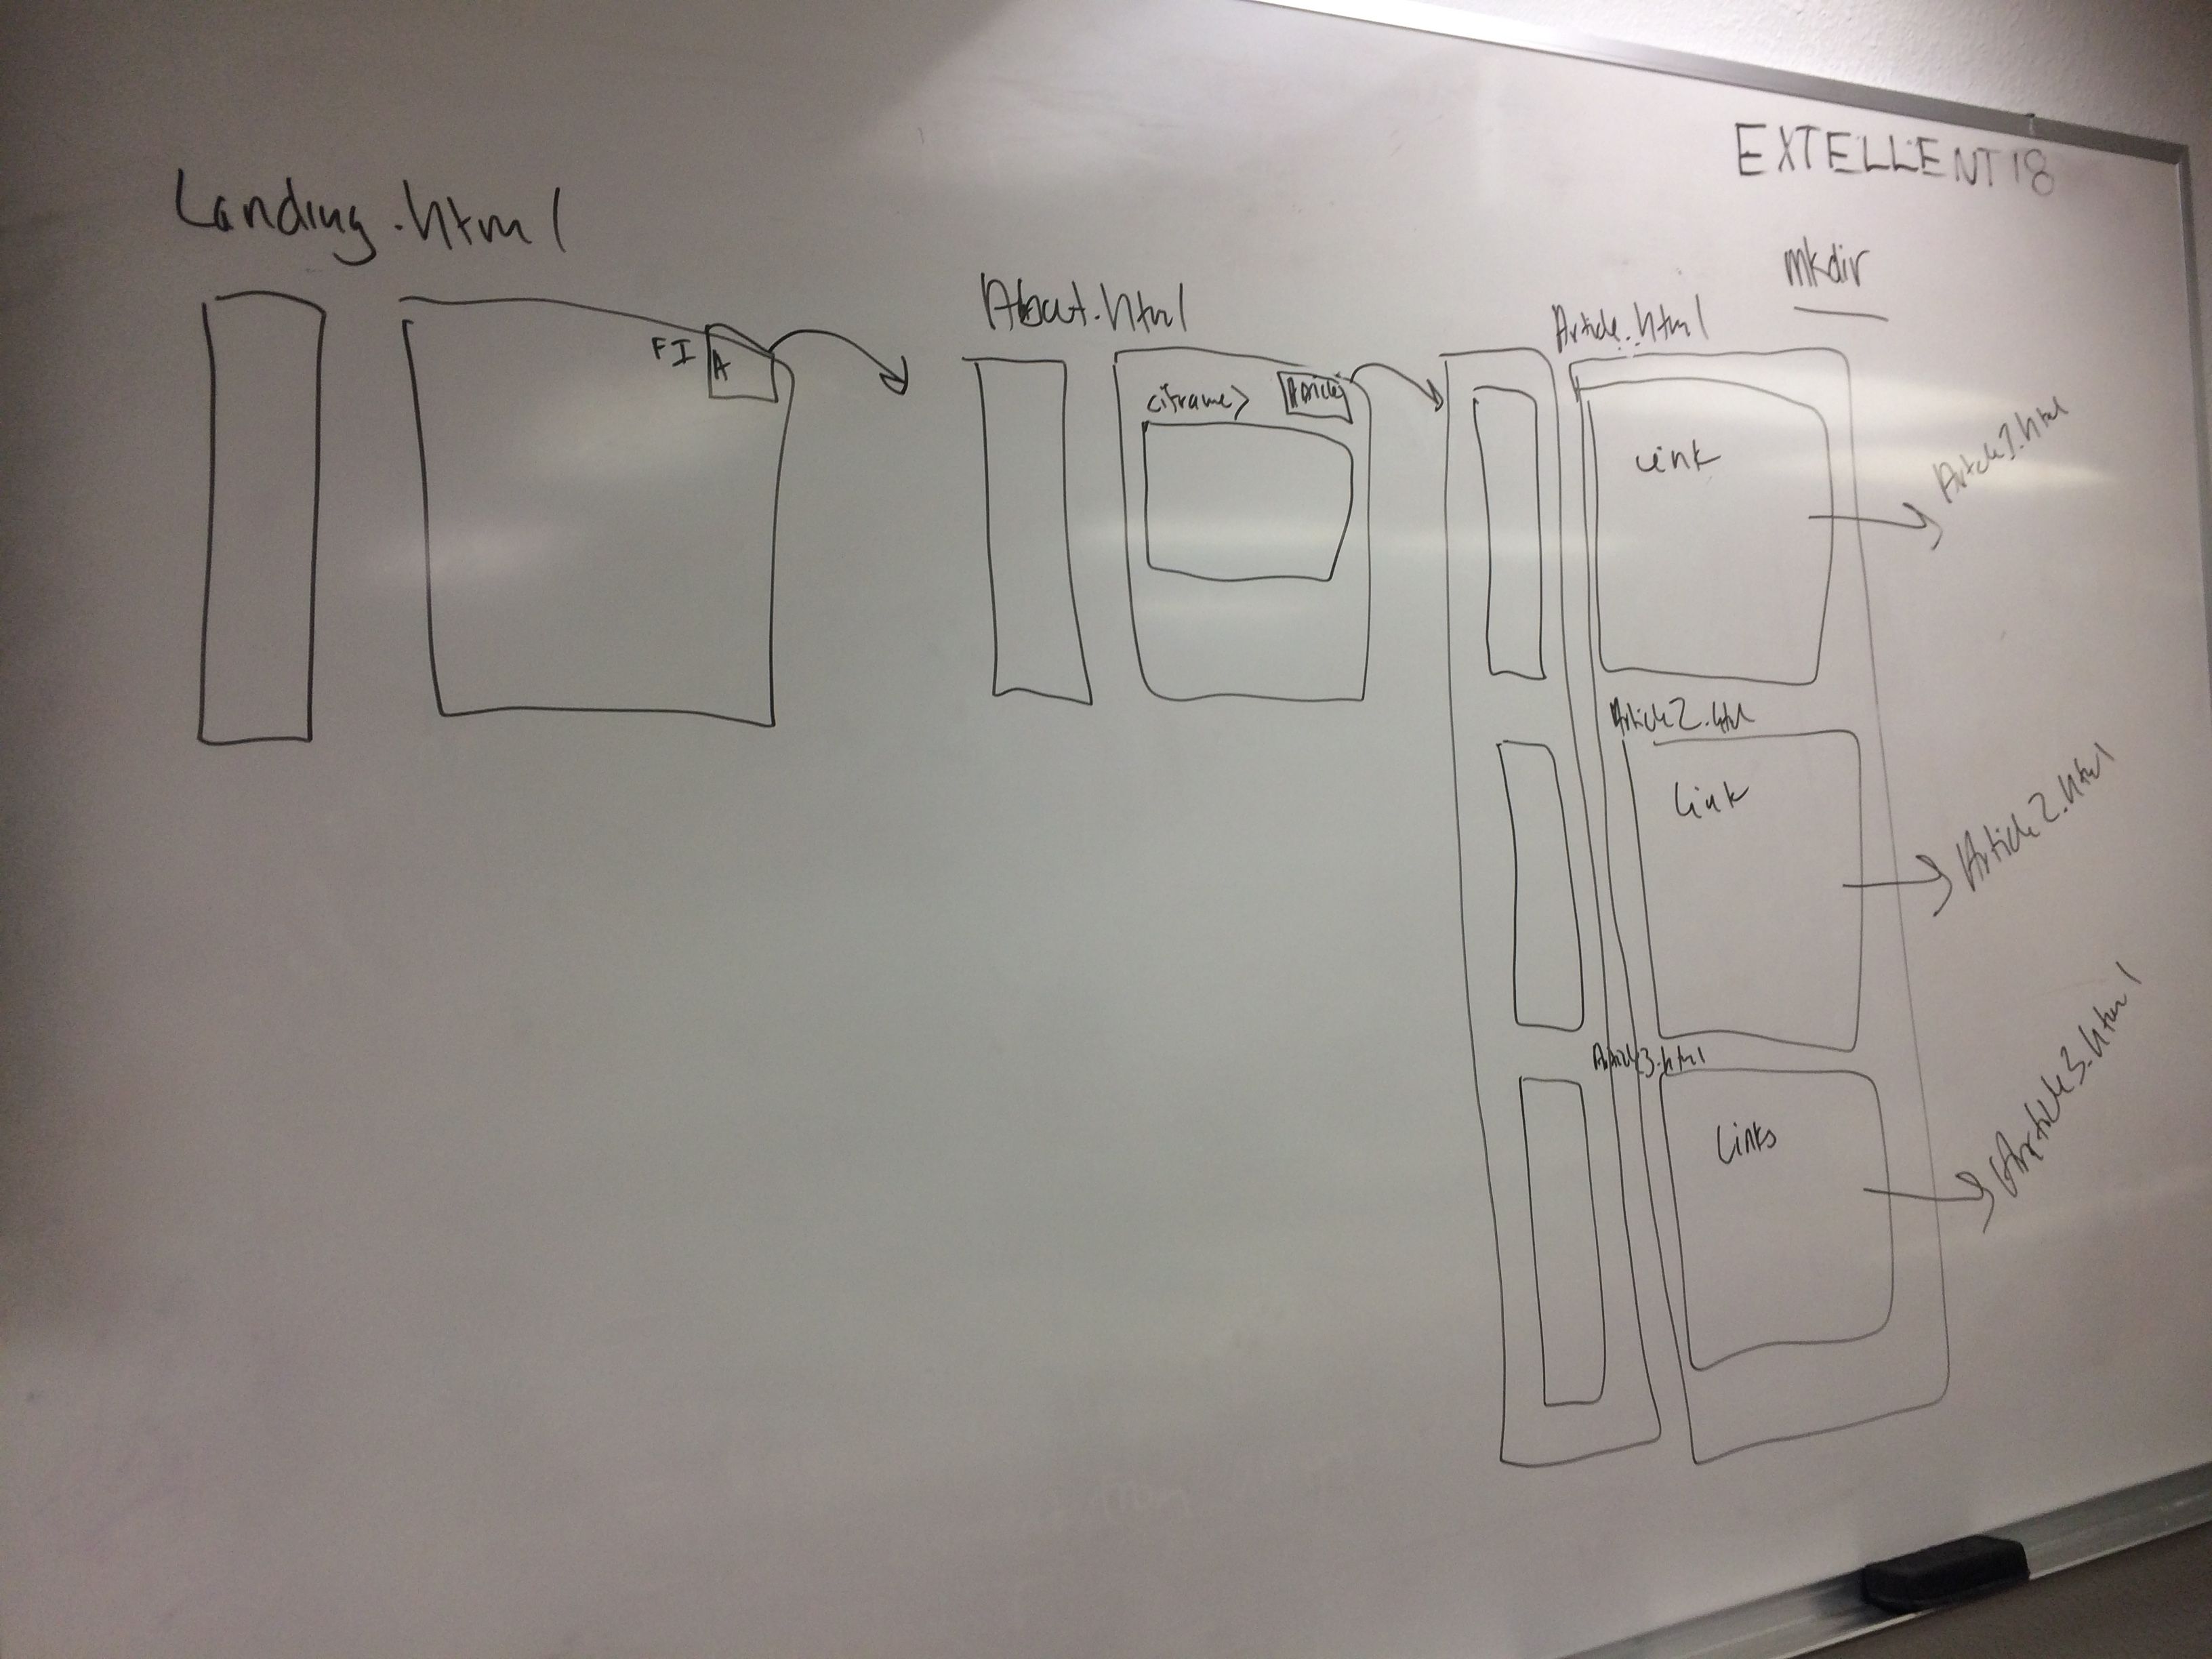 EXTELLENT18
mkdir
Landing.html
FI
A
About.html
<iframe>
Article
Article.html
Link
Article1.html
Article2.html
Link
Article2.html
Article3.html
Links
Article3.html